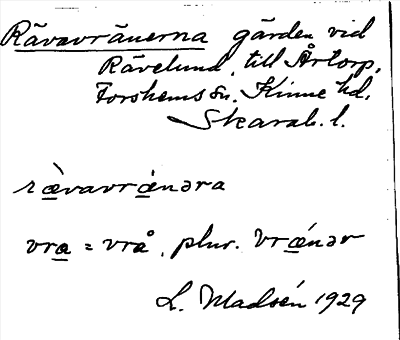 Rävavränerna gärden vid
Rävelund, till Årtorp,
Forshems sn. Kinne hd.
Skarab. l.
rævavrænəra
vra = vrå, plur. vrǽnər
L. Madsén 1929